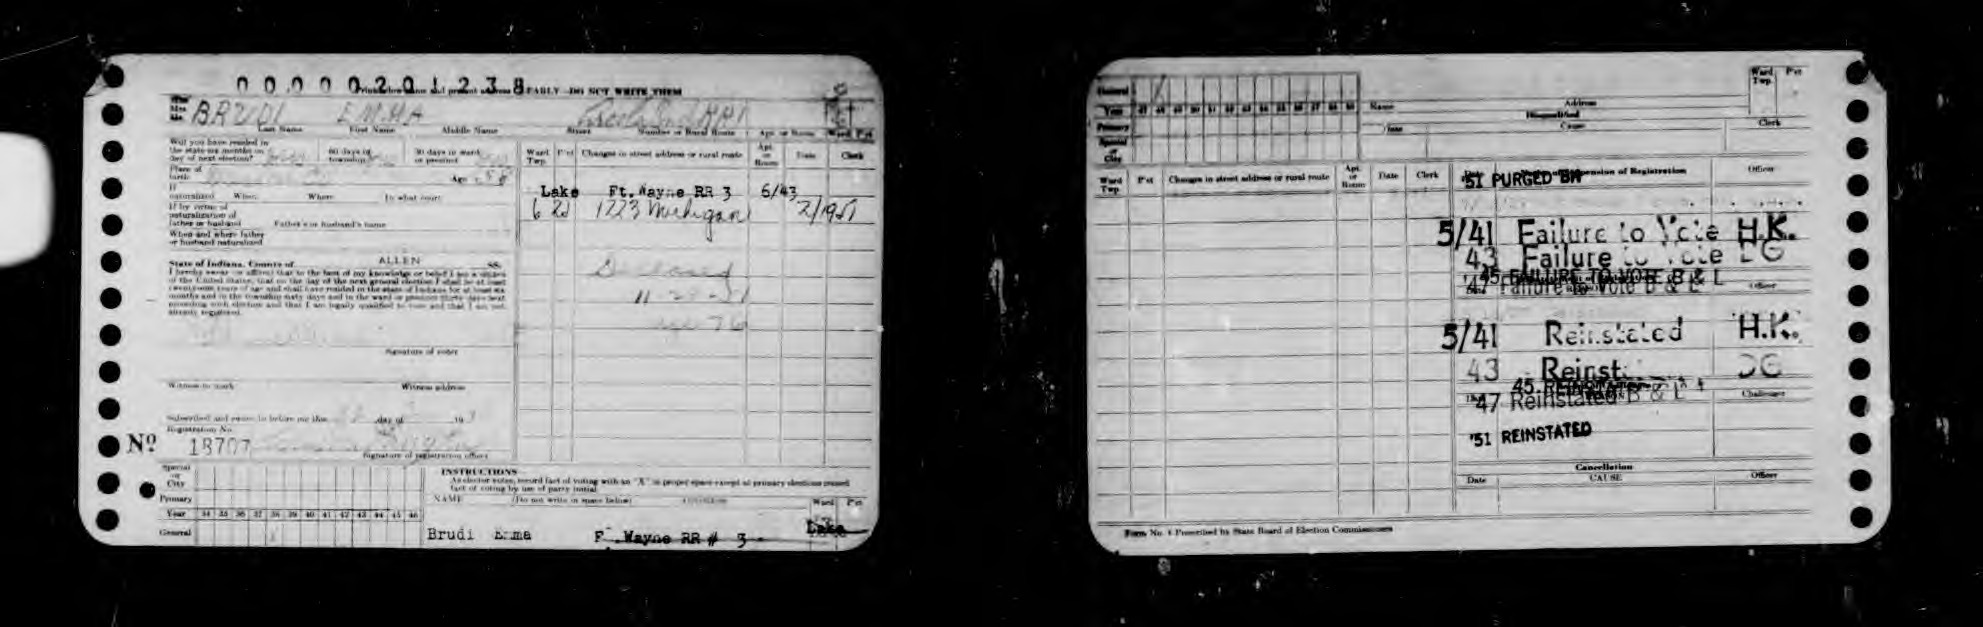 0 0 0 0 0 2 0 1 2 3 8
EARLY—DO NOT WRITE THEM
Mrs.
BRUDI EMMA
Last Name First Name Middle Name Street Number or Rural Route Apt. or Room Ward Pct
Will you have resided in
the state six months on
day of next election?
60 days in
township
30 days in ward
or precinct
Place of
birth
Age 58
If
naturalized When Where In what court
If by virtue of
naturalization of
father or husband Father's or husband's name
When and where father
or husband naturalized
State of Indiana, County of ALLEN SS:
I hereby swear (or affirm) that to the best of my knowledge or belief I am a citizen
of the United States, that on the day of the next general election I shall be at least
twenty-one years of age and shall have resided in the state of Indiana for at least six
months and in the township sixty days and in the ward or precinct thirty days next
preceding such election and that I am legally qualified to vote and that I am not
already registered.
Signature of voter
Witness to mark Witness address
Subscribed and sworn to before me this day of 19
Registration No.
No 18707
Signature of registration officer
Ward
Twp. Pct Changes in street address or rural route Apt.
or
Room Date Clerk
Lake Ft. Wayne RR 3 6/43
6 21 1223 Michigan 2/1951
Deceased
11-20-51
age 76
Special
or
City
Primary
Year 34 35 36 37 38 39 40 41 42 43 44 45 46
General X
INSTRUCTIONS
As elector votes, record fact of voting with an "X" in proper space except at primary elections record
fact of voting by use of party initial
NAME (Do not write in space below) ADDRESS Ward Pct
Brudi Emma Ft. Wayne RR # 3 Lake
General X
Year 47 48 49 50 51 52 53 54 55 56 57 58 59
Primary
Special
or
City
Name Address Ward
Twp. Pct
Disqualified
Date Cause Clerk
Ward
Twp. Pct Changes in street address or rural route Apt.
or
Room Date Clerk
Suspension of Registration Officer
'51 PURGED BH
5/41 Failure to Vote H.K.
43 Failure to Vote DG
'45 FAILURE TO VOTE B & L
'47 Failure to Vote B & L
Date Officer
5/41 Reinstated H.K.
43 Reinst. DG
45 REINSTATED
'47 Reinstated B & L
Challenger
'51 REINSTATED
Cancellation
Date CAUSE Officer
Form No. 1 Prescribed by State Board of Election Commissioners